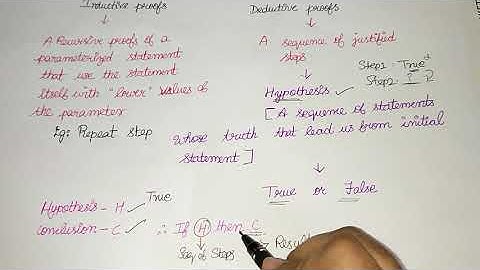 Inductive proofs
A Recursive proofs of a
parameterized statement
that use the statement
itself with "lower" values of
the parameter
Eg: Repeat step
Deductive proofs
A sequence of justified
steps
Step1 - True
Step2 -
Hypothesis
[ A sequence of statements
whose truth that lead us from initial
statement ]
True or False
Hypothesis - H True
Conclusion - C
∴ If H then C
Seq of Steps
Result